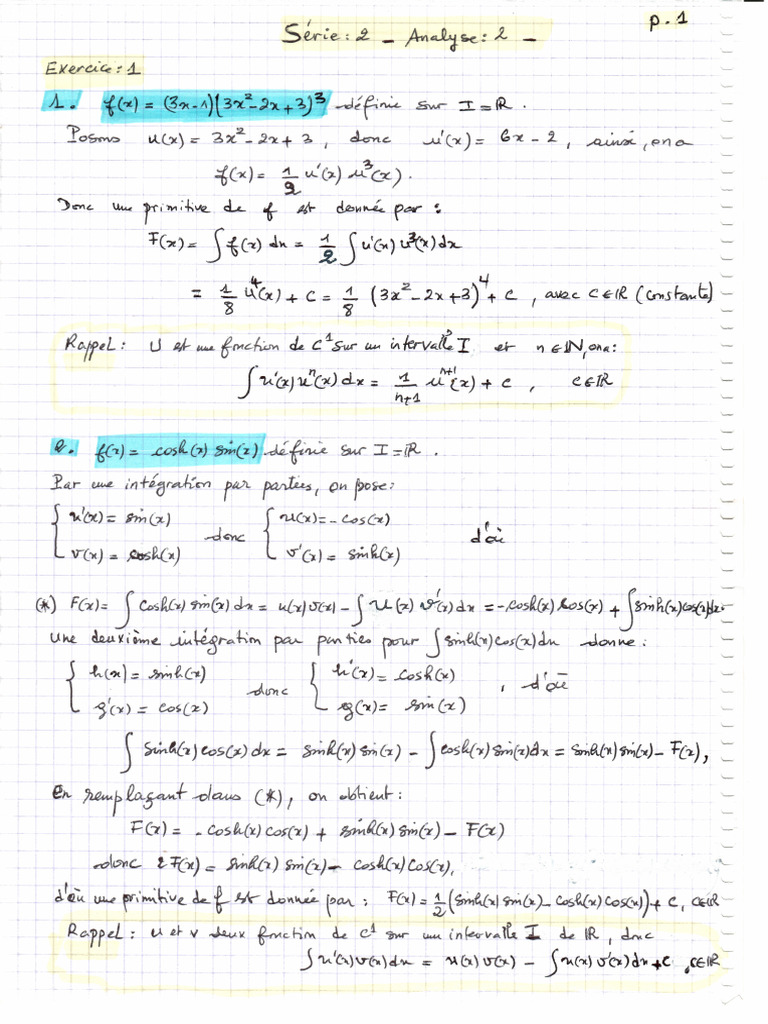 p.1
Série: 2 _ Analyse: 2 _
Exercice: 1
1. f(x) = (3x-1)(3x²-2x+3)³ définie sur I = ℝ.
Posons u(x) = 3x²-2x+3, donc u'(x) = 6x-2, ainsi, on a
f(x) = 1/2 u'(x) u³(x).
Donc une primitive de f est donnée par :
F(x) = ∫ f(x) dx = 1/2 ∫ u'(x) u³(x) dx
= 1/8 u⁴(x) + c = 1/8 (3x²-2x+3)⁴ + c, avec c∈ℝ (constante)
Rappel: U est une fonction de C¹ sur un intervalle I et n∈ℕ, on a:
∫ u'(x) uⁿ(x) dx = 1/(n+1) uⁿ⁺¹(x) + c, c∈ℝ
2. f(x) = cosh(x) sin(x) définie sur I = ℝ.
Par une intégration par parties, on pose:
{ u'(x) = sin(x) donc { u(x) = -cos(x) d'où
{ v(x) = cosh(x) { v'(x) = sinh(x)
(*) F(x) = ∫ cosh(x) sin(x) dx = u(x) v(x) - ∫ u(x) v'(x) dx = -cosh(x) cos(x) + ∫ sinh(x) cos(x) dx.
Une deuxième intégration par parties pour ∫ sinh(x) cos(x) dx donne:
{ h(x) = sinh(x) donc { h'(x) = cosh(x) , d'où
{ g'(x) = cos(x) { g(x) = sin(x)
∫ sinh(x) cos(x) dx = sinh(x) sin(x) - ∫ cosh(x) sin(x) dx = sinh(x) sin(x) - F(x),
En remplaçant dans (*), on obtient:
F(x) = -cosh(x) cos(x) + sinh(x) sin(x) - F(x)
donc 2F(x) = sinh(x) sin(x) - cosh(x) cos(x),
d'où une primitive de f est donnée par: F(x) = 1/2 (sinh(x) sin(x) - cosh(x) cos(x)) + c, c∈ℝ
Rappel: u et v deux fonction de C¹ sur un intervalle I de ℝ, donc
∫ u'(x) v(x) dx = u(x) v(x) - ∫ u(x) v'(x) dx + c, c∈ℝ